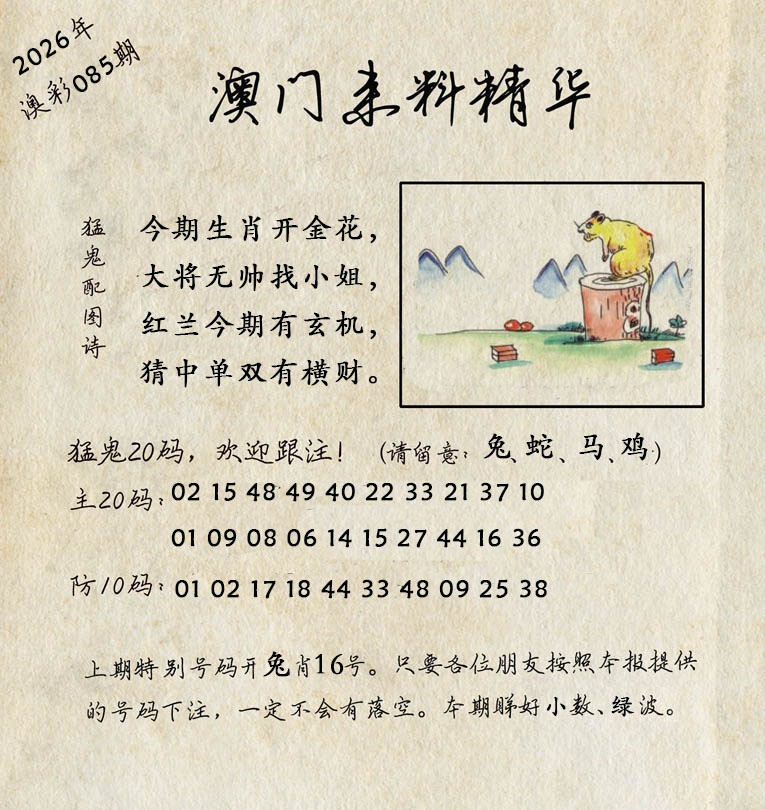 2026年
澳彩085期
澳门来料精华
猛鬼配图诗
今期生肖开金花，
大将无帅找小姐，
红兰今期有玄机，
猜中单双有横财。
猛鬼20码，欢迎跟注！（请留意：兔、蛇、马、鸡）
主20码：02 15 48 49 40 22 33 21 37 10
01 09 08 06 14 15 27 44 16 36
防10码：01 02 17 18 44 33 48 09 25 38
上期特别号码开兔肖16号。只要各位朋友按照本报提供
的号码下注，一定不会有落空。本期睇好小数、绿波。